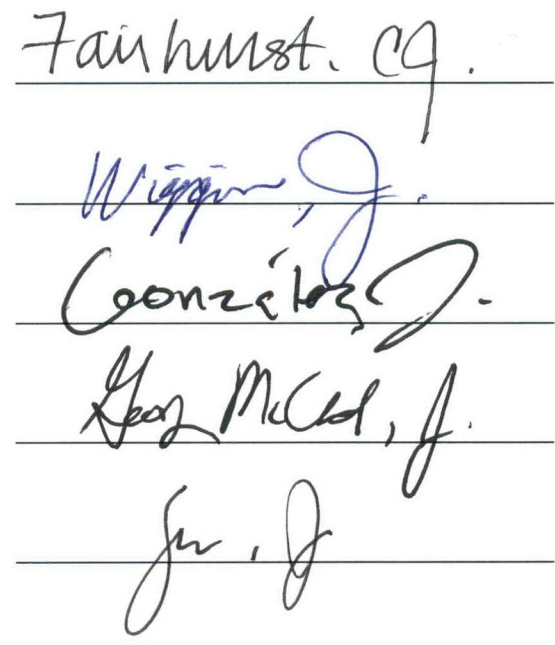 Fairhurst. CJ.
Wiggins, J.
González J.
Gordon McCloud, J.
Yu, J